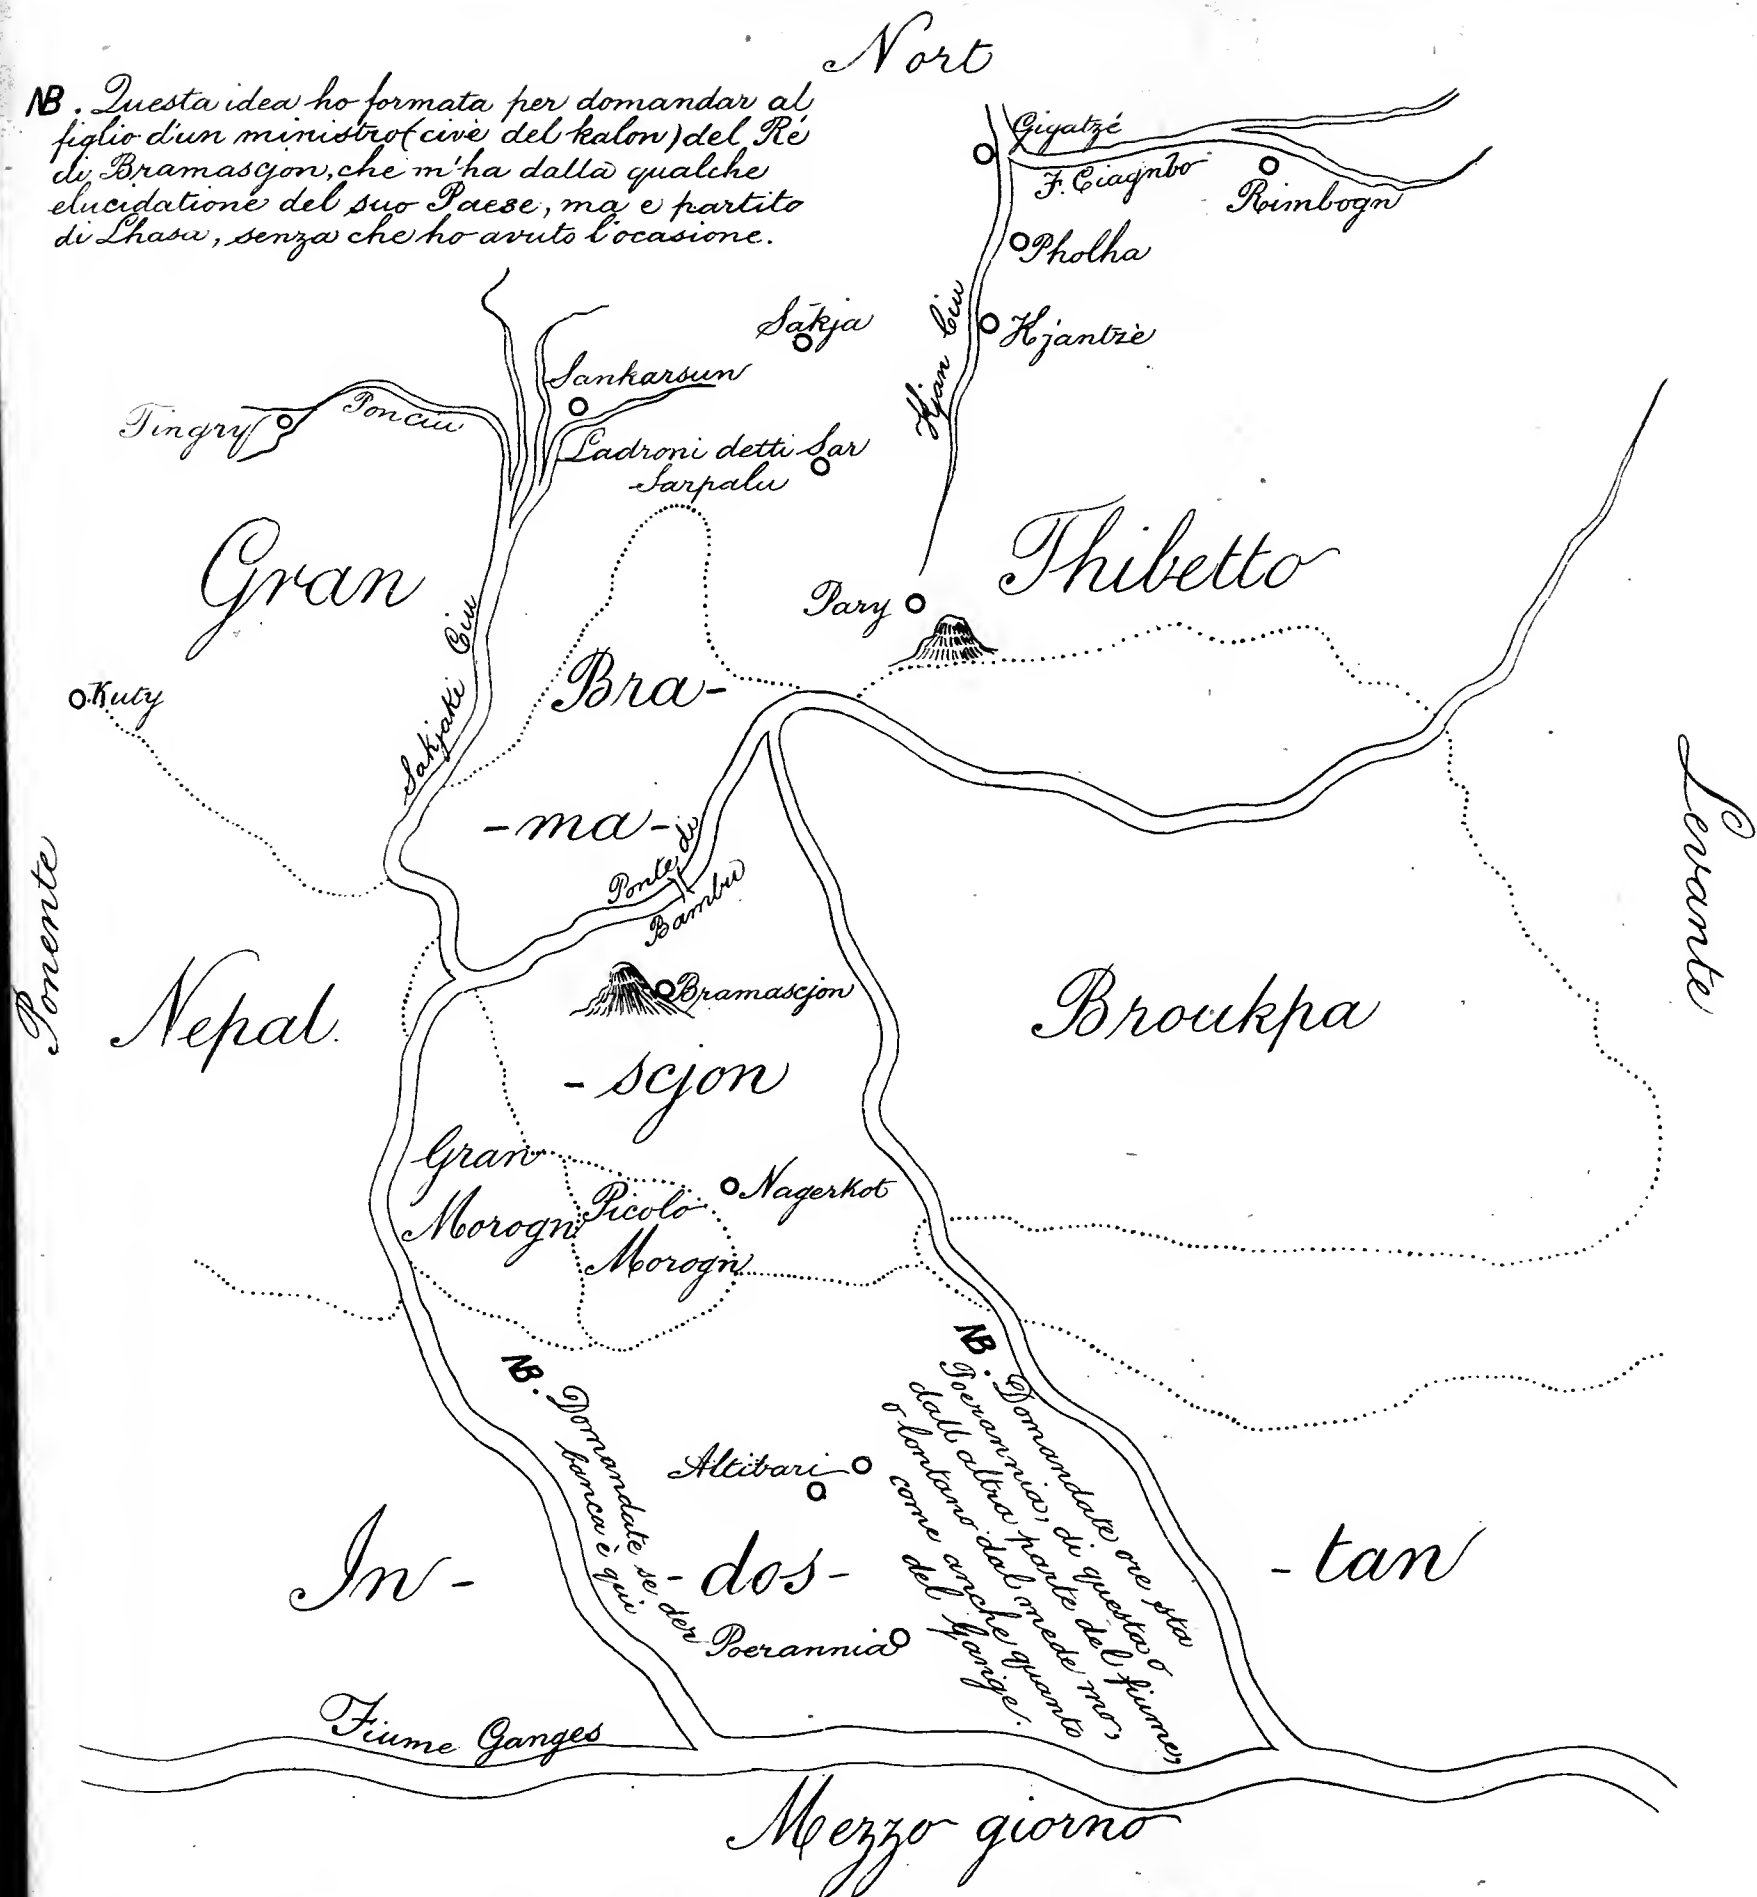 Nort
NB. Questa idea ho formata per domandar al
figlio d'un ministro (civè del kalon) del Ré
di Bramascjon, che m'ha dalla qualche
elucidatione del suo Paese, ma e partito
di Lhasa, senza che ho avuto l'ocasione.
Gigatzé
F. Ciagnbo
Rimbogn
Pholha
Kjan Ciu
Kjantzè
Sakja
Sankarsun
Tingry
Ponciu
Ladroni detti Sar
Sarpalu
Gran
Thibetto
Pary
Sakjaki Ciu
Kuty
Bra-
-ma-
Ponte di
Bambu
Levante
Ponente
Nepal.
Bramascjon
Broukpa
-scjon
Gran
Morogn
Picolo
Morogn
Nagerkot
NB. Domandate se der
banca è qui
NB. Domandate ove sta
Poerannia, di questa o
dall altra parte del fiume,
o lontano dal mede mo,
come anche quanto
del Gange.
Altibari
In-
-dos-
-tan
Poerannia
Fiume Ganges
Mezzo giorno